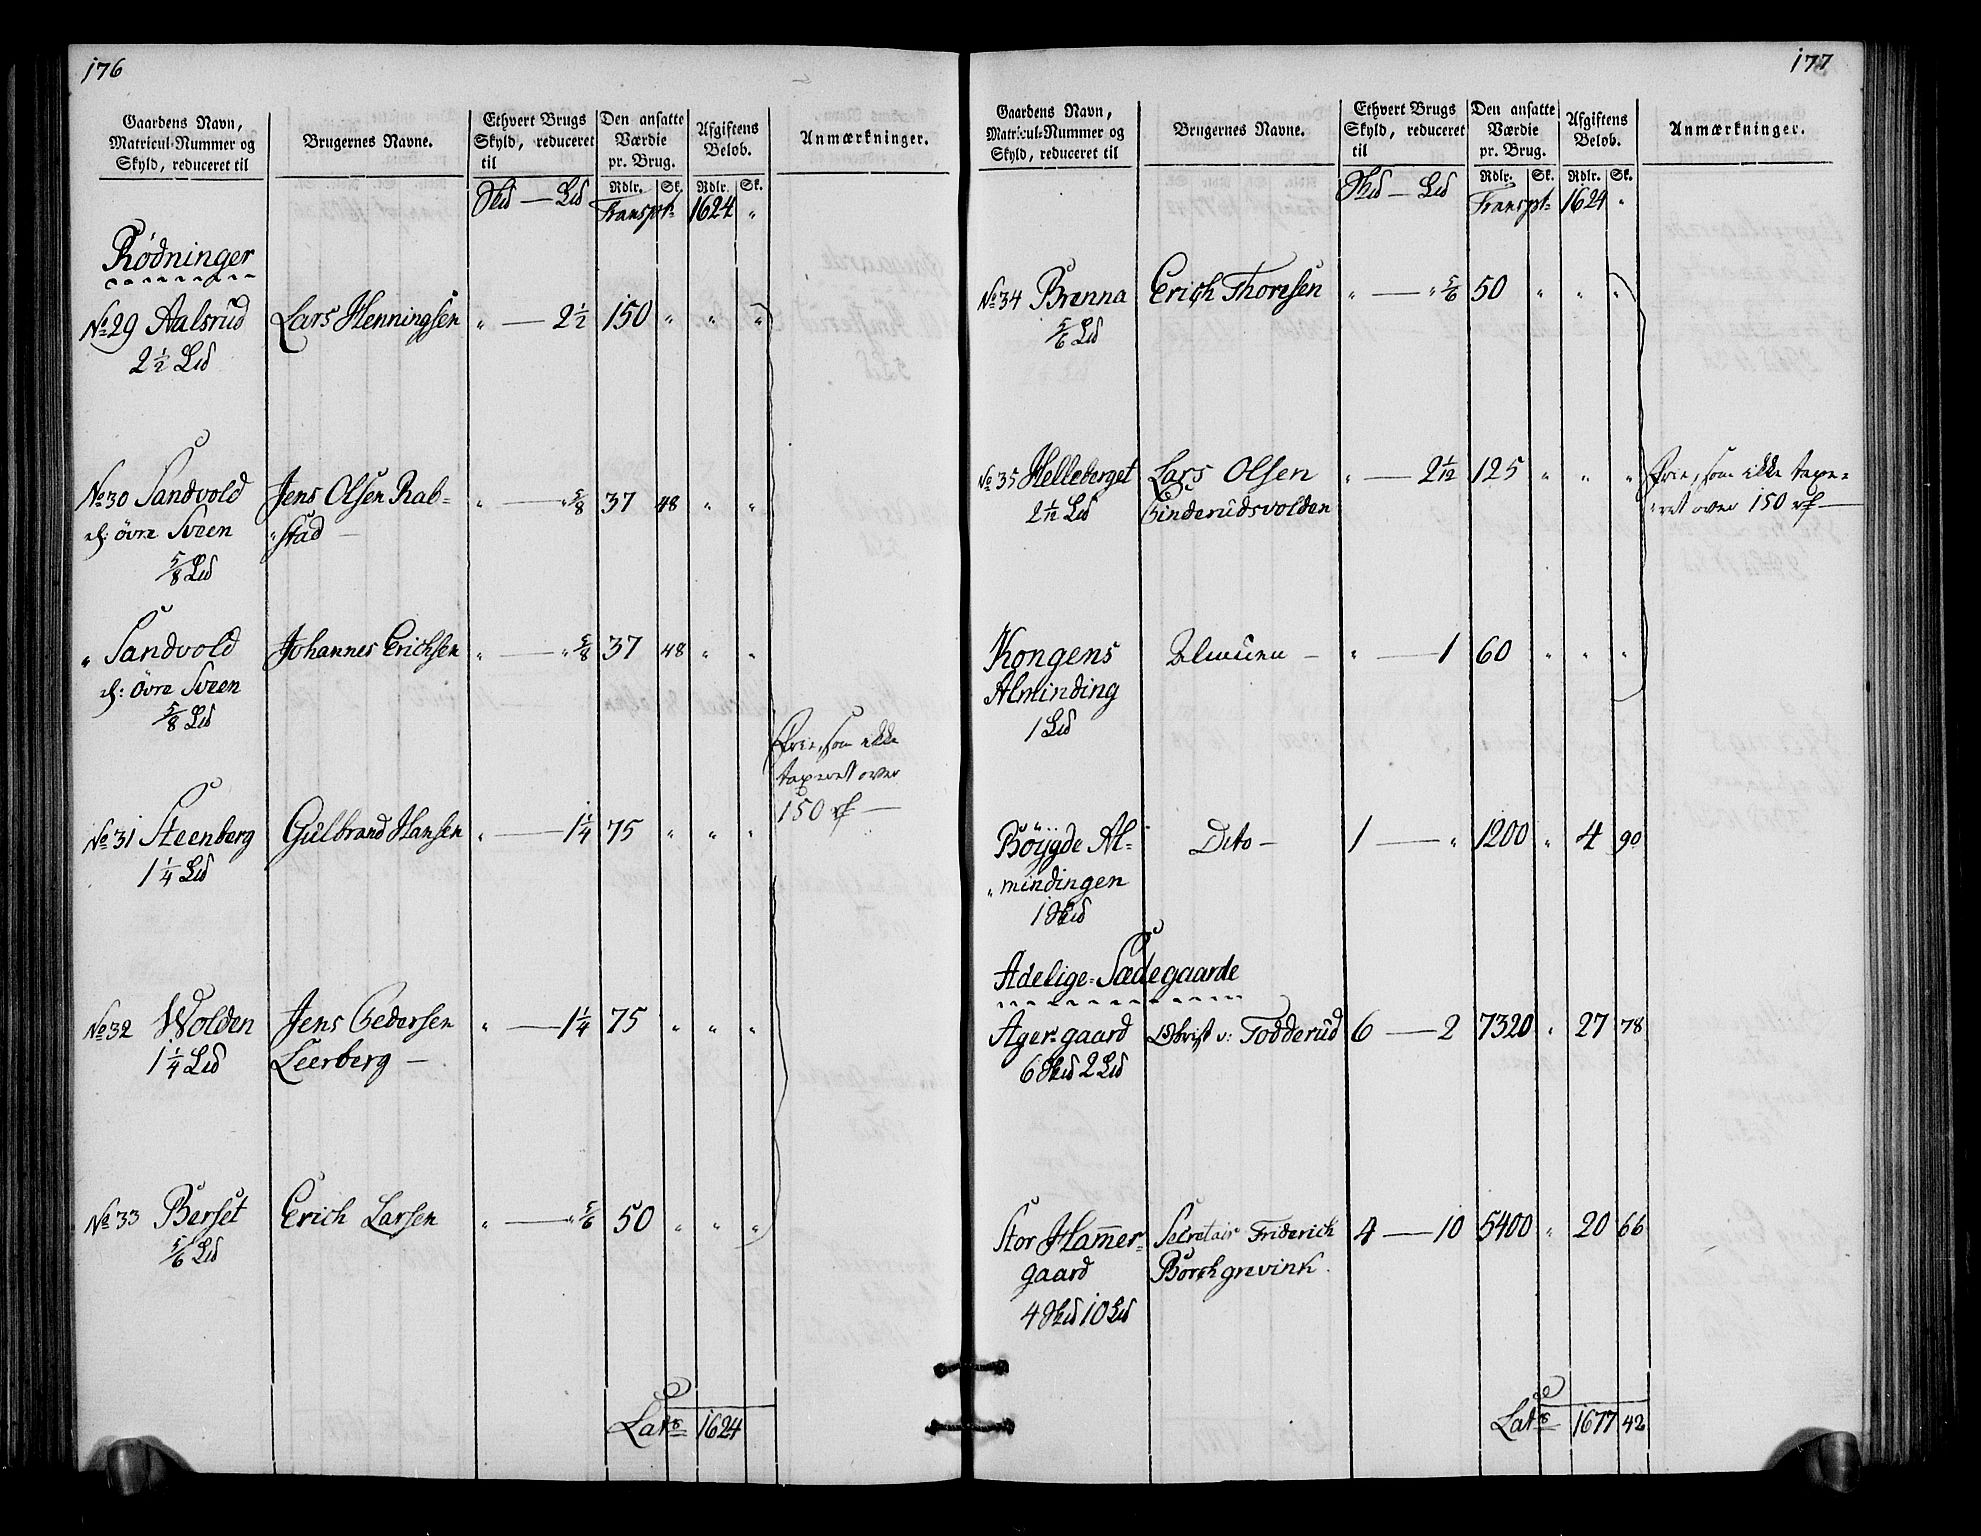 176
Gaardens Navn, Matricul-Nummer og Skyld, reduceret til | Brugernes Navne. | Ethvert Brugs Skyld, reduceret til | Den ansatte Værdie pr. Brug. | Afgiftens Beløb. | Anmærkninger.
Rdlr. | Sk. | Rdlr. | Sk.
Skd — Ld | Transpt: | 1624 | "
Rödninger
No 29 Aalsrud | Lars Henningsen | " — 2½ | 150 | " | " | "
2½ Ld
No 30 Sandvold | Jens Olsen Rab- | " — " 5/8 | 37 | 48 | " | "
el: övre Sveen | "stad —
5/8 Ld
" Sandvold | Johannes Erichsen | " — " 5/8 | 37 | 48 | " | "
el: Övre Sveen
5/8 Ld
Frie, som ikke
taxeret over
150 rd —
No 31 Steenberg | Gulbrand Hansen | " — 1¼ | 75 | " | " | "
1¼ Ld
No 32 Wolden | Jens Pedersen | " — 1¼ | 75 | " | " | "
1¼ Ld | Leerberg —
No 33 Berset | Erich Larsen | " — " 5/6 | 50 | " | " | "
5/6 Ld
Latus | 1624
177
Gaardens Navn, Matricul-Nummer og Skyld, reduceret til | Brugernes Navne. | Ethvert Brugs Skyld, reduceret til | Den ansatte Værdie pr. Brug. | Afgiftens Beløb. | Anmærkninger.
Rdlr. | Sk. | Rdlr. | Sk.
Skd — Ld | Transpt: | 1624 | "
No 34 Brenna | Erich Thoresen | " — " 5/6 | 50 | " | " | "
5/6 Ld
No 35 Helleberget | Lars Olsen | " — 2 1/12 | 125 | " | " | " | Frie, som ikke taxe-
2 1/12 Ld | Ginderudsvolden | "ret over 150 rd —
Kongens | Almuen — | " — 1 | 60 | " | " | "
Alminding
1 Ld
Böygde Al- | Dito — | 1 — " | 1200 | " | 4 | 90
"mindingen
1 Skd
Adelige-Sædegaarde
Ager-gaard | Christ v: Todderud | 6 — 2 | 7320 | " | 27 | 78
6 Skd 2 Ld
Stor Ham̅er- | Secretair Friderich | 4 — 10 | 5400 | " | 20 | 66
gaard | Borchgrevink.
4 Skd 10 Ld
Latus | 1677 | 42